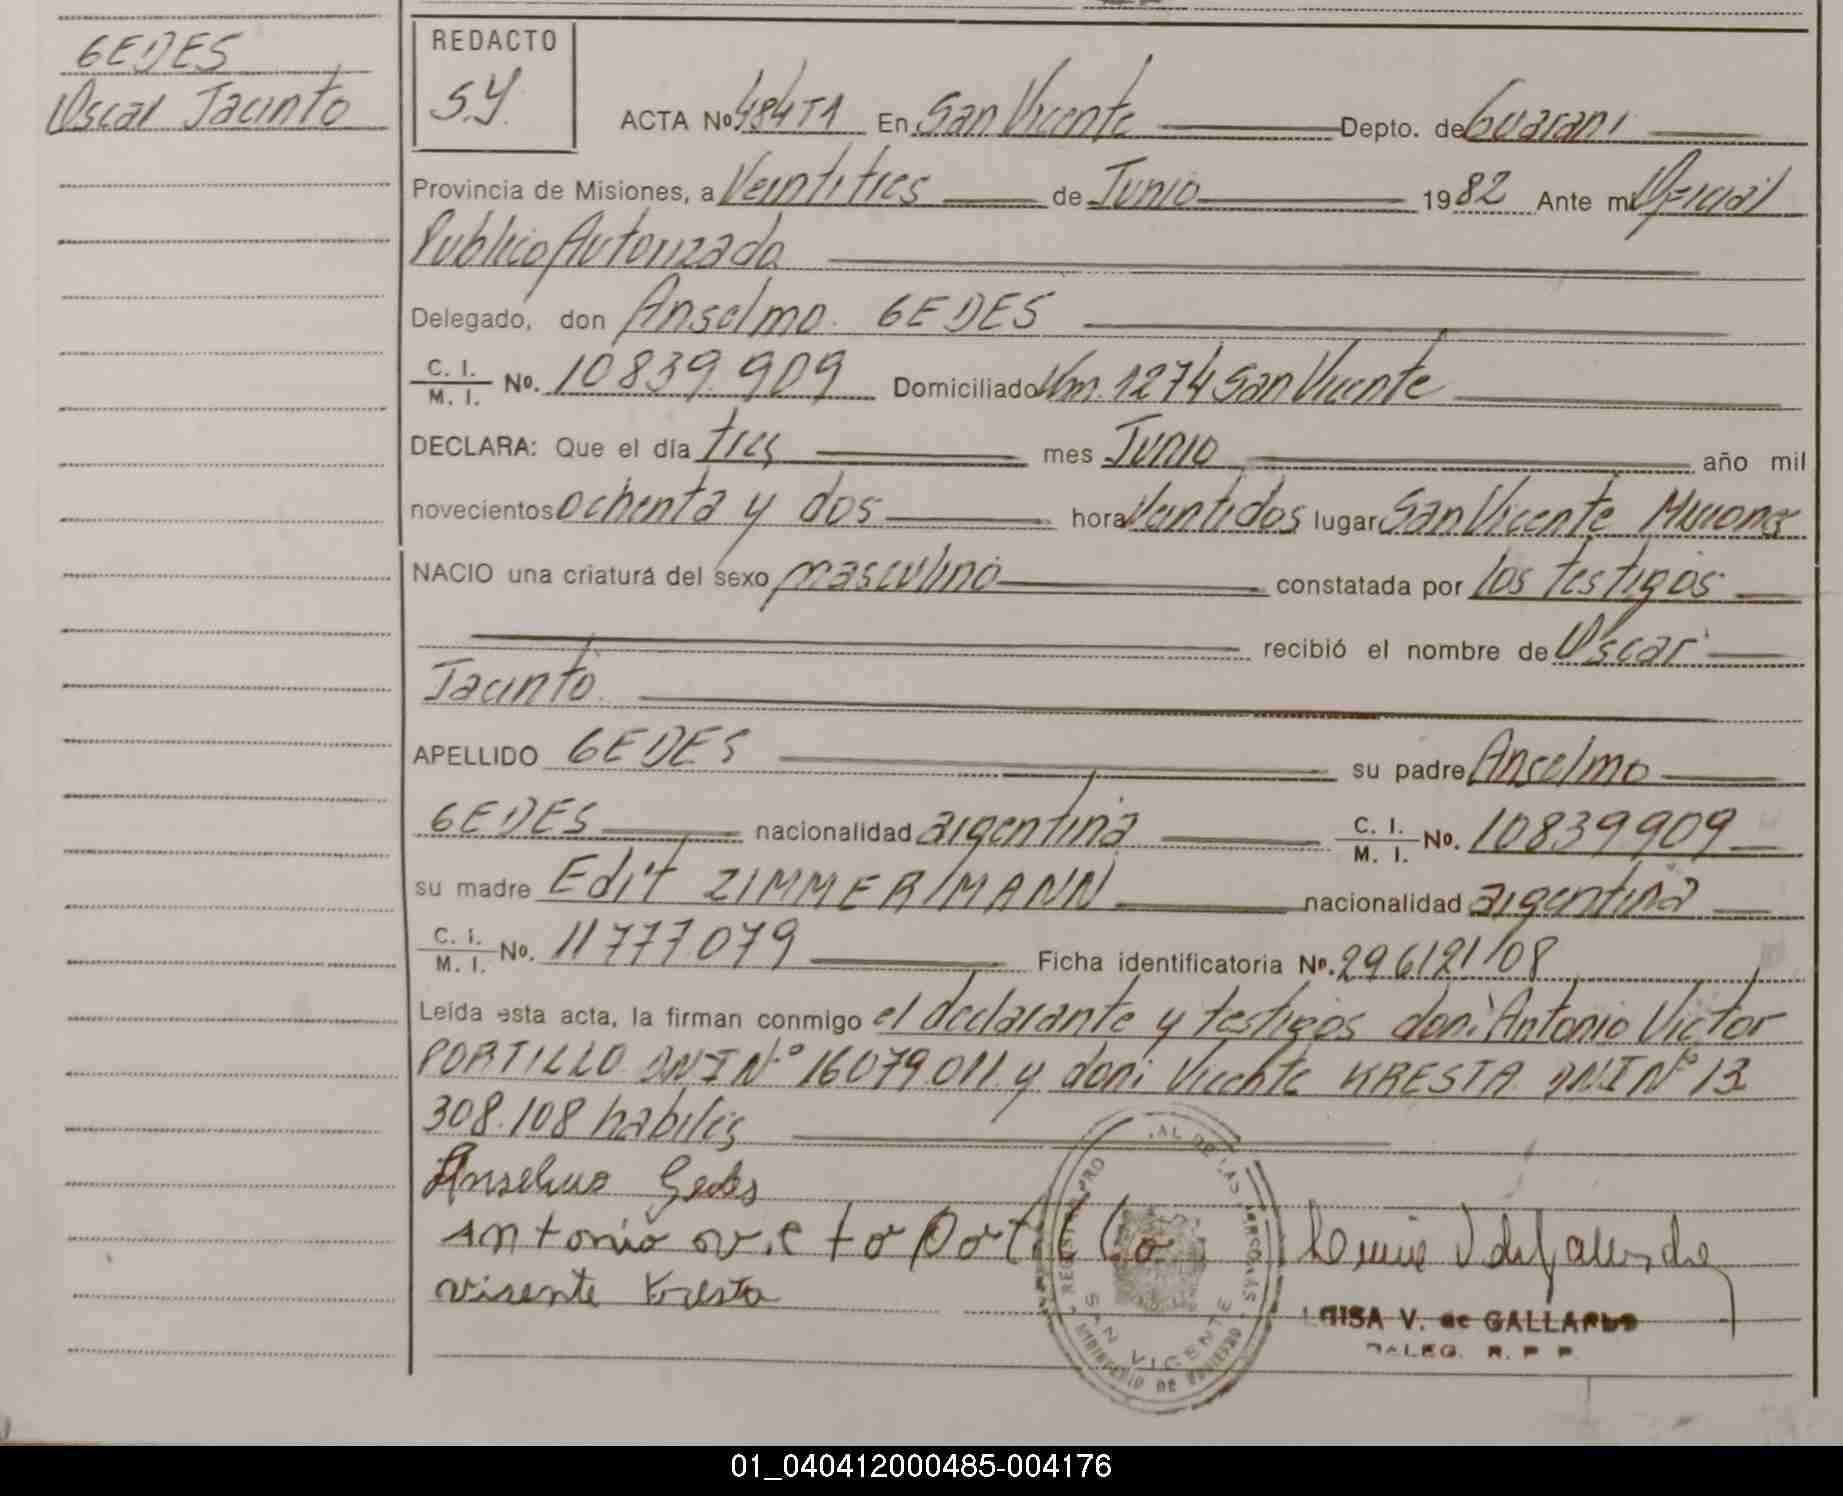 GEDES
Oscar Jacinto
REDACTO
S.Y.
ACTA Nº 484T1 En San Vicente Depto. de Guarani
Provincia de Misiones, a Veintitres de Junio 1982 Ante mi Oficial
Publico Autorizado
Delegado, don Anselmo GEDES
C. I. M. I. No. 10839.909 Domiciliado Km. 1274 San Vicente
DECLARA: Que el día tres mes Junio año mil
novecientos ochenta y dos hora Veintidos lugar San Vicente Misiones
NACIO una criatura del sexo masculino constatada por los testigos
recibió el nombre de Oscar
Jacinto
APELLIDO GEDES su padre Anselmo
GEDES nacionalidad argentina C. I. M. I. No. 10839909
su madre Edit ZIMMERMANN nacionalidad argentina
C. I. M. I. No. 11777.079 Ficha identificatoria Nº. 296121/08
Leída esta acta, la firman conmigo el declarante y testigos don: Antonio Victor
PORTILLO DNI Nº 16079.011 y don: Vicente KRESTA DNI Nº 13
308.108 habiles
Anselmo Gedes
Antonio victo Portillo
visente Kresta
REGISTRO PRO AL DE LAS PERSONAS
SAN VICENTE
MINISTERIO DE GOBIERNO
LUISA V. de GALLARDO
DALEG. R. P. P.
01_040412000485-004176